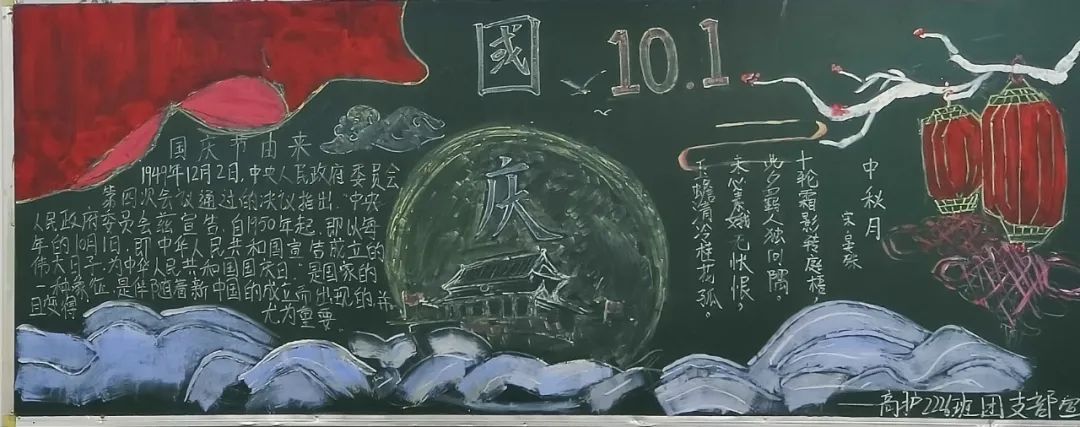 国
10.1
庆
国庆节由来
1949年12月2日,中央人民政府委员会
第四次会议通过的决议指出:“中央
人民政府委员会兹宣告:自1950年起,即以每
年的10月1日,即中华人民共和国宣告成立的
伟大日子,为中华人民共和国国庆日。”是国家的
一种象征,是伴随着新中国的成立而出现的并
且变得尤为重要.
中秋月
宋·晏殊
十轮霜影转庭梧,
此夕羁人独向隅。
未必素娥无怅恨,
玉蟾清冷桂花孤。
——高护2226班团支部